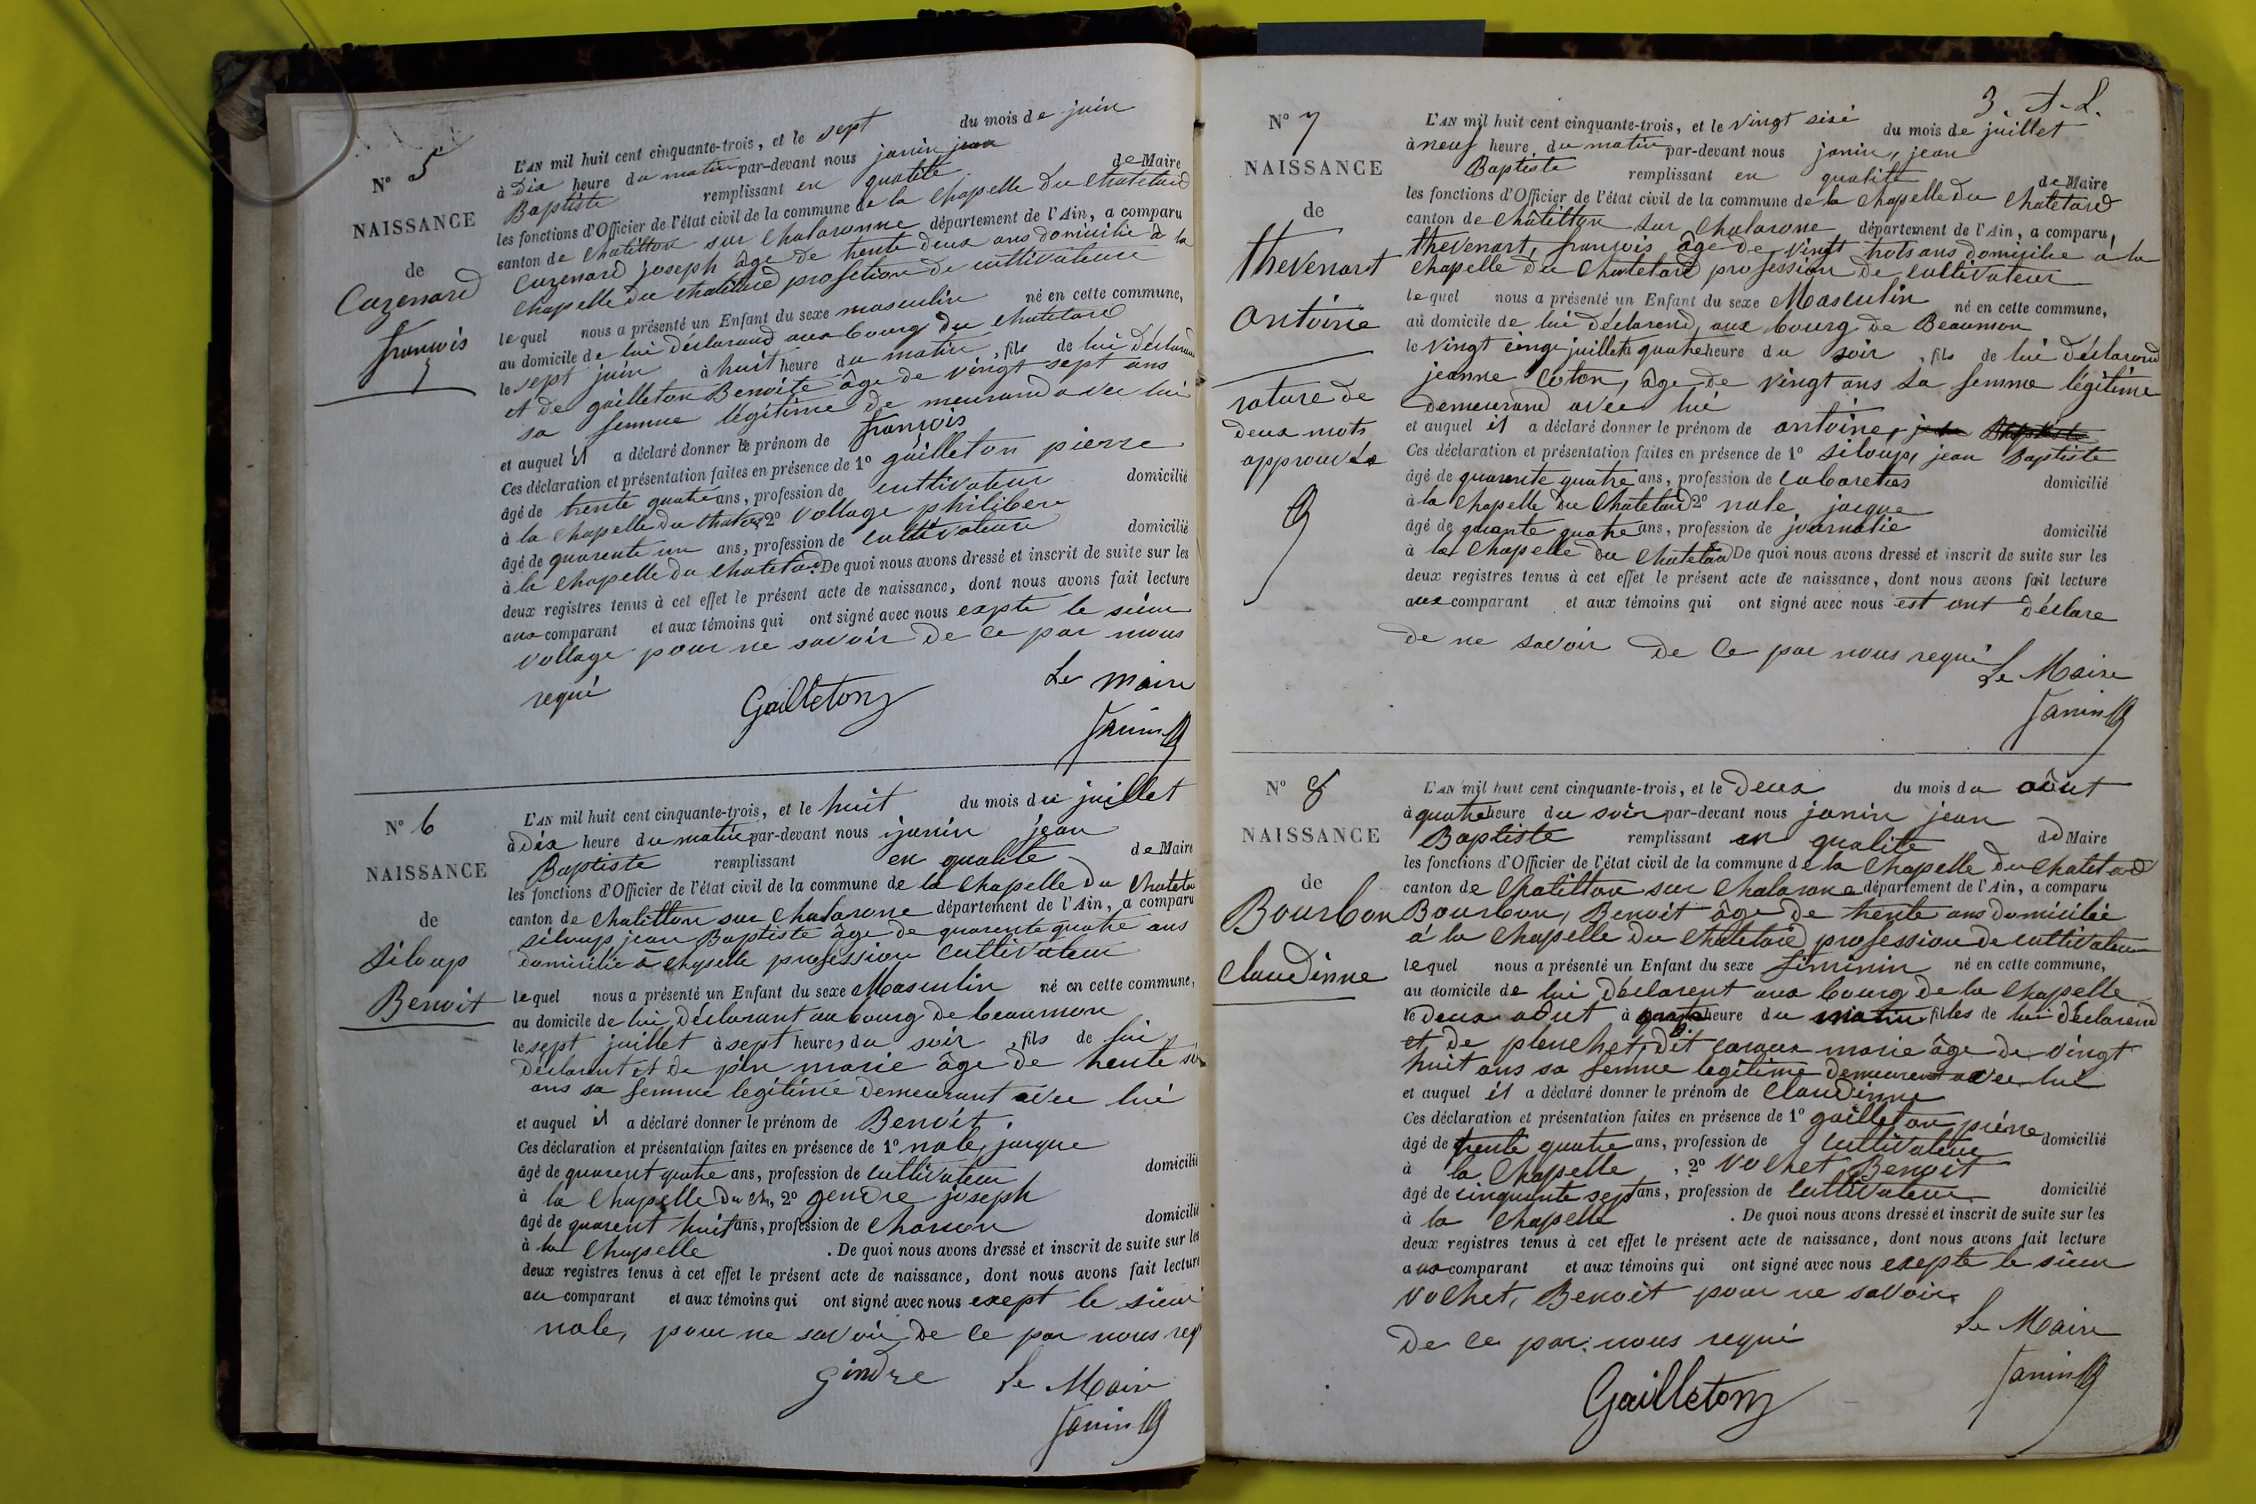 N° 5
NAISSANCE
de
Cuzenard
françois
L'AN mil huit cent cinquante-trois, et le sept du mois de juin
à Dix heure du matin par-devant nous janin jean
Baptiste remplissant en qualité de Maire
les fonctions d'Officier de l'état civil de la commune de la Chapelle du Chatelard
canton de Chatillon sur Chalaronne département de l'Ain, a comparu
Cuzenard joseph âge de trente deux ans domicilié à la
Chapelle du Chatelard profetion de cultivateur
lequel nous a présenté un Enfant du sexe masculin né en cette commune,
au domicile de lui déclarand aux bourg du Chatelard
le sept juin à huit heure du matin, fils de lui déclarand
et de gailleton Benoite âge de vingt sept ans
sa femme légitime de meurand avec lui
et auquel il a déclaré donner le prénom de françois
Ces déclaration et présentation faites en présence de 1° gailleton pierre
âgé de trente quatre ans, profession de cultivateur domicilié
à la Chapelle du Chatelard 2° Vollage philiber
âgé de quarente un ans, profession de cultivateur domicilié
à la Chapelle du Chatelard. De quoi nous avons dressé et inscrit de suite sur les
deux registres tenus à cet effet le présent acte de naissance, dont nous avons fait lecture
aux comparant et aux témoins qui ont signé avec nous expte le sieur
Vollage pour ne savoir de ce par nous
requi
Le maire
Gailleton
Janin
N° 6
NAISSANCE
de
Siloup
Benoit
L'AN mil huit cent cinquante-trois, et le huit du mois du juillet
à Dix heure du matin par-devant nous janin jean
Baptiste remplissant en qualité de Maire
les fonctions d'Officier de l'état civil de la commune de la Chapelle du Chatela
canton de Chatillon sur Chalarone département de l'Ain, a comparu
Siloup jean Baptiste âge de quarente quatre ans
domicilié à Chapelle profession cultivateur
lequel nous a présenté un Enfant du sexe Masculin né en cette commune,
au domicile de lui déclarant au bourg de beaumon
le sept juillet à sept heures du soir, fils de lui
déclarant et de marie âge de trente six
ans sa femme legitime demeurant avec lui
et auquel il a déclaré donner le prénom de Benoit
Ces déclaration et présentation faites en présence de 1° nole jacque
âgé de quarent quatre ans, profession de cultivateur domicilié
à la Chapelle du ch, 2° gendre joseph
âgé de quarent huit ans, profession de domicilié
à la Chapelle. De quoi nous avons dressé et inscrit de suite sur les
deux registres tenus à cet effet le présent acte de naissance, dont nous avons fait lecture
au comparant et aux témoins qui ont signé avec nous exept le sieur
nole, pour ne savoir de ce par nous req
gindre Le Maire
Janin
3. A. L.
N° 7
NAISSANCE
de
thevenart
antoine
rature de
deux mots
approuvés
L'AN mil huit cent cinquante-trois, et le vingt sixé du mois de juillet
à neuf heure du matin par-devant nous janin, jean
Baptiste remplissant en qualité de Maire
les fonctions d'Officier de l'état civil de la commune de la Chapelle du Chatelard
canton de Châtillon sur Chalarone département de l'Ain, a comparu,
thevenart, françois âge de vingt trois ans domicilié à la
Chapelle du Chatelard profession de cultivateur
lequel nous a présenté un Enfant du sexe Masculin né en cette commune,
au domicile de lui déclarend, aux bourg de Beaumon
le vingt cinge juillet à quatre heure du soir, fils de lui déclarend
jeanne Coton, âge de vingt ans sa femme légitime
demeurand avec lui
et auquel il a déclaré donner le prénom de antoine, jean Baptiste
Ces déclaration et présentation faites en présence de 1° Siloup, jean Baptiste
âgé de quarente quatre ans, profession de cabaretier domicilié
à la Chapelle du Chatelard 2° nole, jacque
âgé de quante quatre ans, profession de journalié domicilié
à la Chapelle du Chatelard De quoi nous avons dressé et inscrit de suite sur les
deux registres tenus à cet effet le présent acte de naissance, dont nous avons fait lecture
aux comparant et aux témoins qui ont signé avec nous est ont déclare
de ne savoir de ce par nous requi
Le Maire
Janin
N° 8
NAISSANCE
de
Bourbon
Claudinne
L'AN mil huit cent cinquante-trois, et le Deux du mois du août
à quatre heure du soir par-devant nous janin jean
Baptiste remplissant en qualité de Maire
les fonctions d'Officier de l'état civil de la commune de la Chapelle du Chatelard
canton de Chatillon sur Chalarone département de l'Ain, a comparu
Bourbon, Benoit âge de trente ans domicilié
à la Chapelle du Chatelard profession de cultivateur
lequel nous a présenté un Enfant du sexe féminin né en cette commune,
au domicile de lui déclarent aux bourg de la Chapelle
le deux août à heure du matin filles de lui déclarend
et de plenchet, dit marie âge de vingt
huit ans sa femme legitime demeurent avec lui
et auquel il a déclaré donner le prénom de Claudinne
Ces déclaration et présentation faites en présence de 1° gailleton, piérre
âgé de trente quatre ans, profession de cultivateur domicilié
à la Chapelle, 2° Vochet Benoit
âgé de cinquante sept ans, profession de cultivateur domicilié
à la Chapelle. De quoi nous avons dressé et inscrit de suite sur les
deux registres tenus à cet effet le présent acte de naissance, dont nous avons fait lecture
aux comparant et aux témoins qui ont signé avec nous exepte le sieur
Vochet, Benoit pour ne savoir
de ce par nous requi
Le Maire
Janin
Gailleton